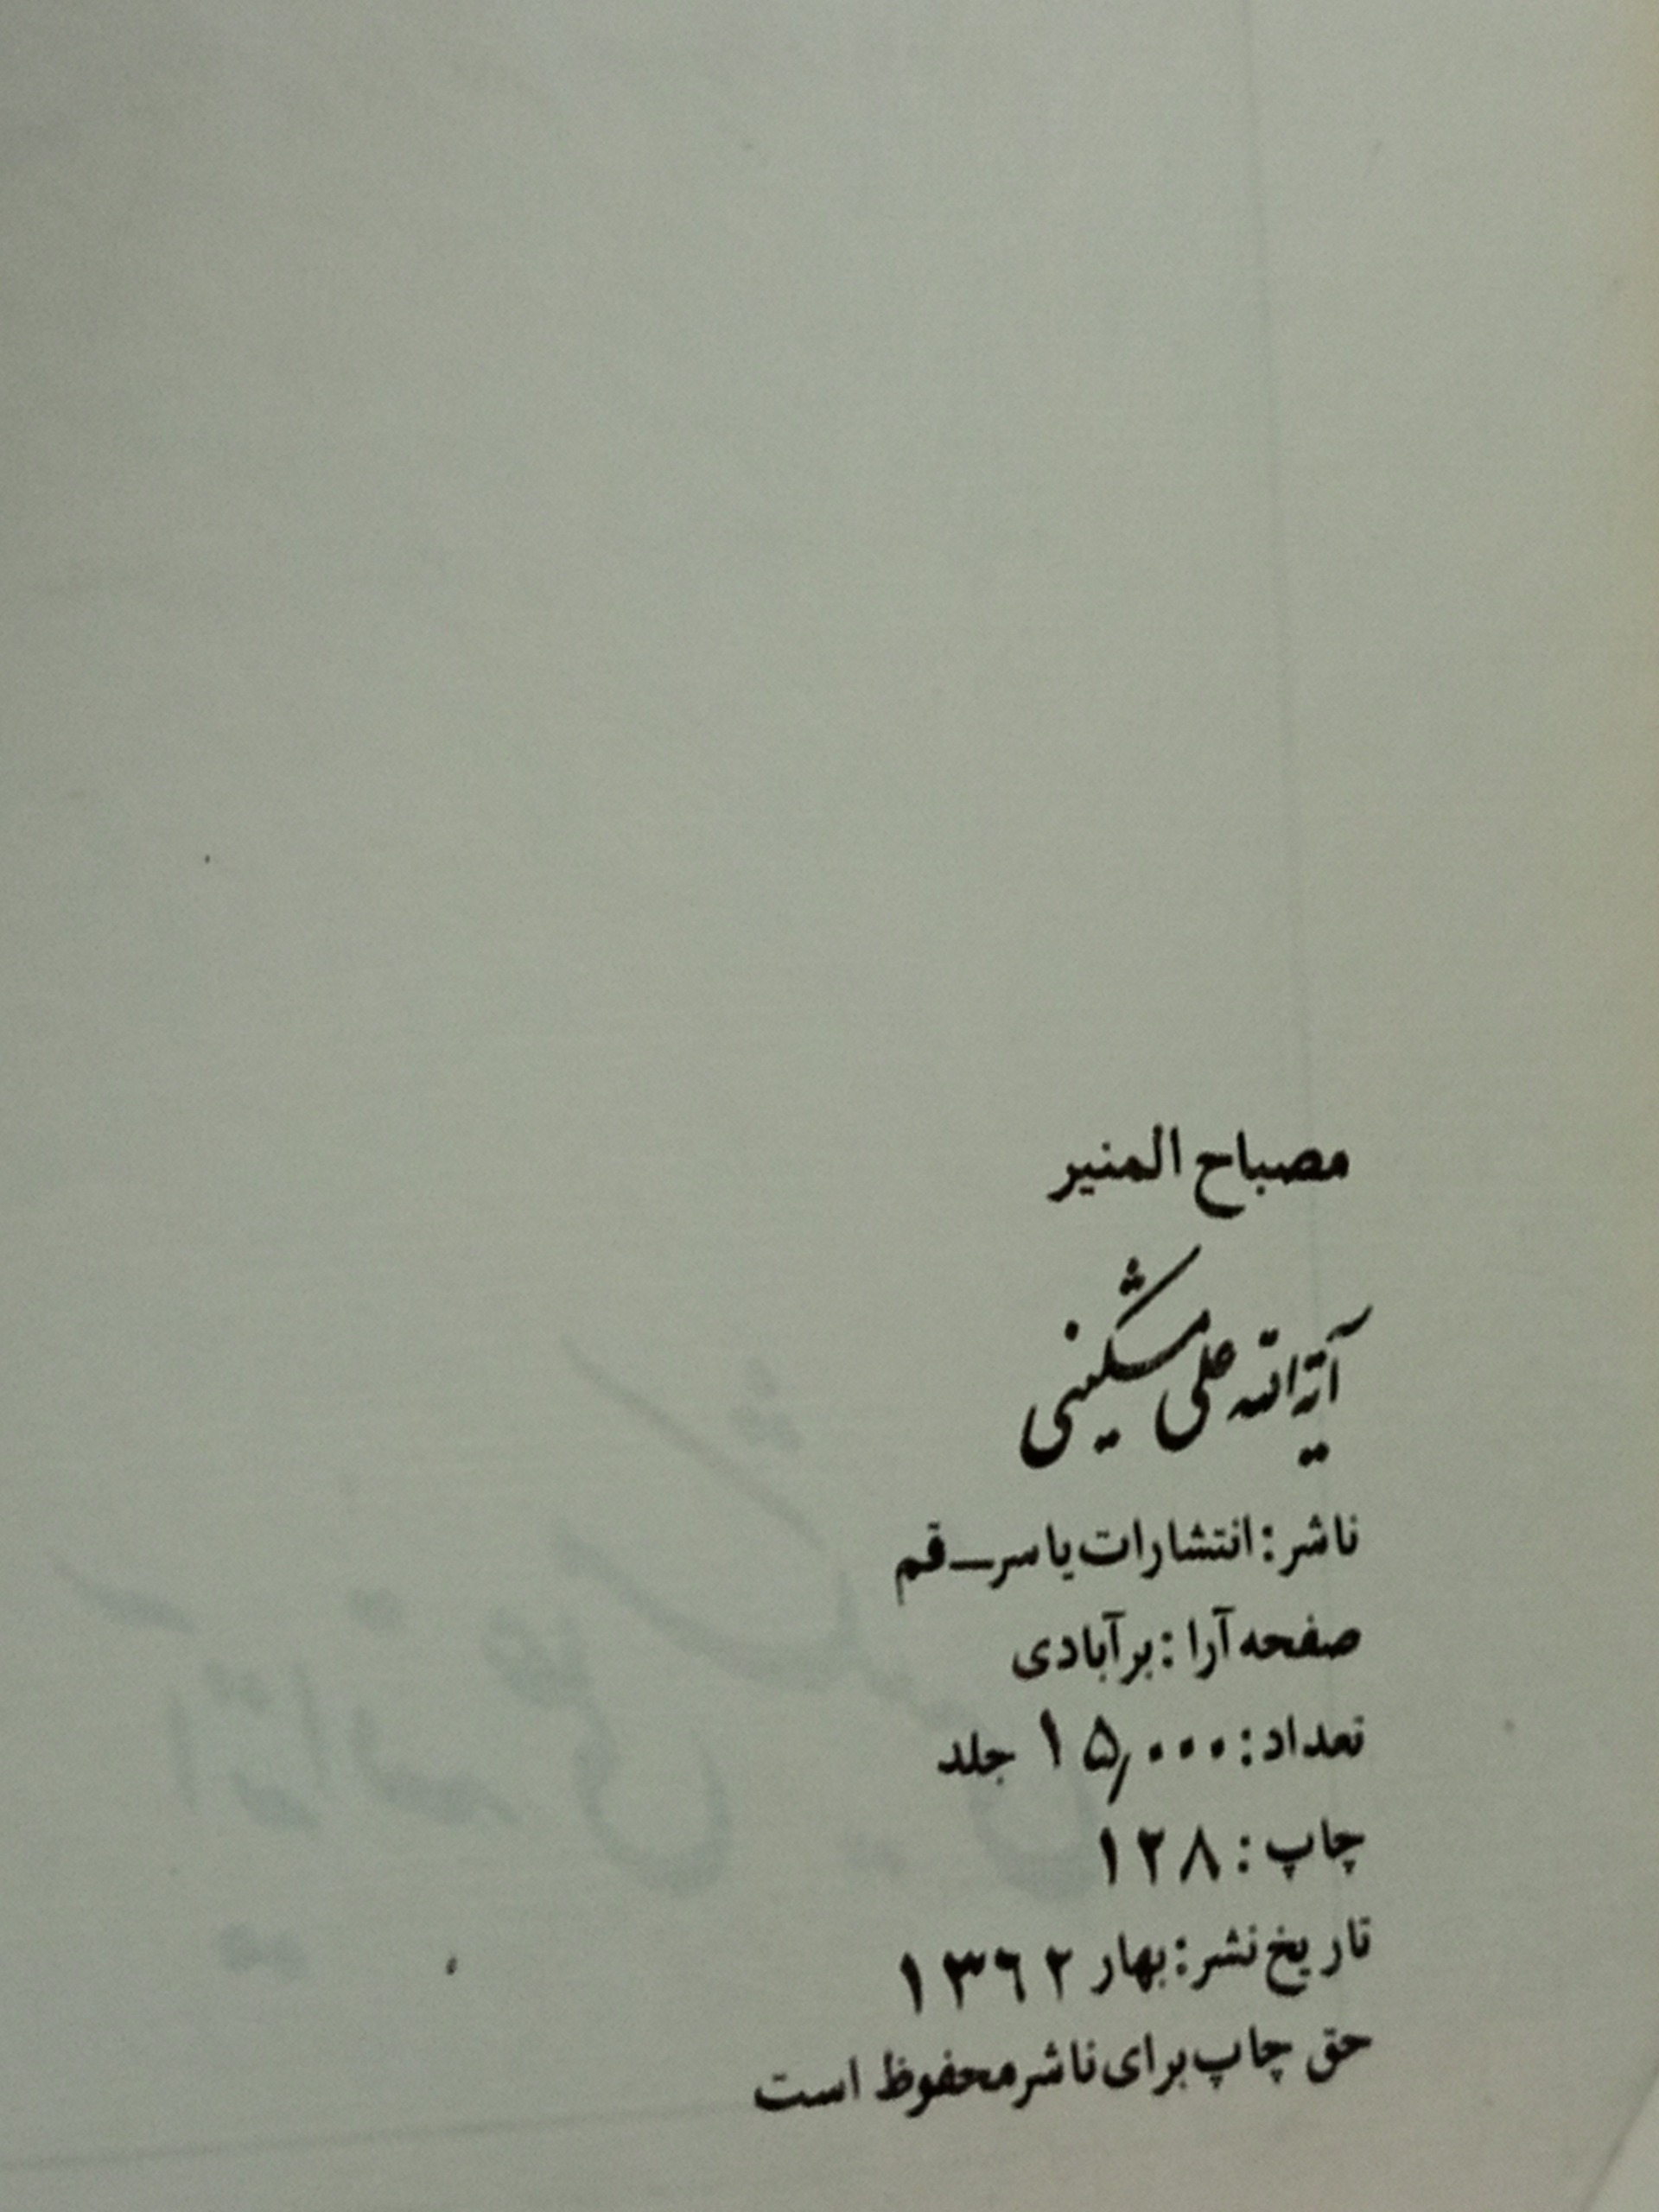 مصباح المنیر
آیة الله علی مشکینی
ناشر: انتشارات یاسر ـ قم
صفحه آرا: برآبادی
تعداد: ۱۵٫۰۰۰ جلد
چاپ: ۱۲۸
تاریخ نشر: بهار ۱۳۶۲
حق چاپ برای ناشر محفوظ است